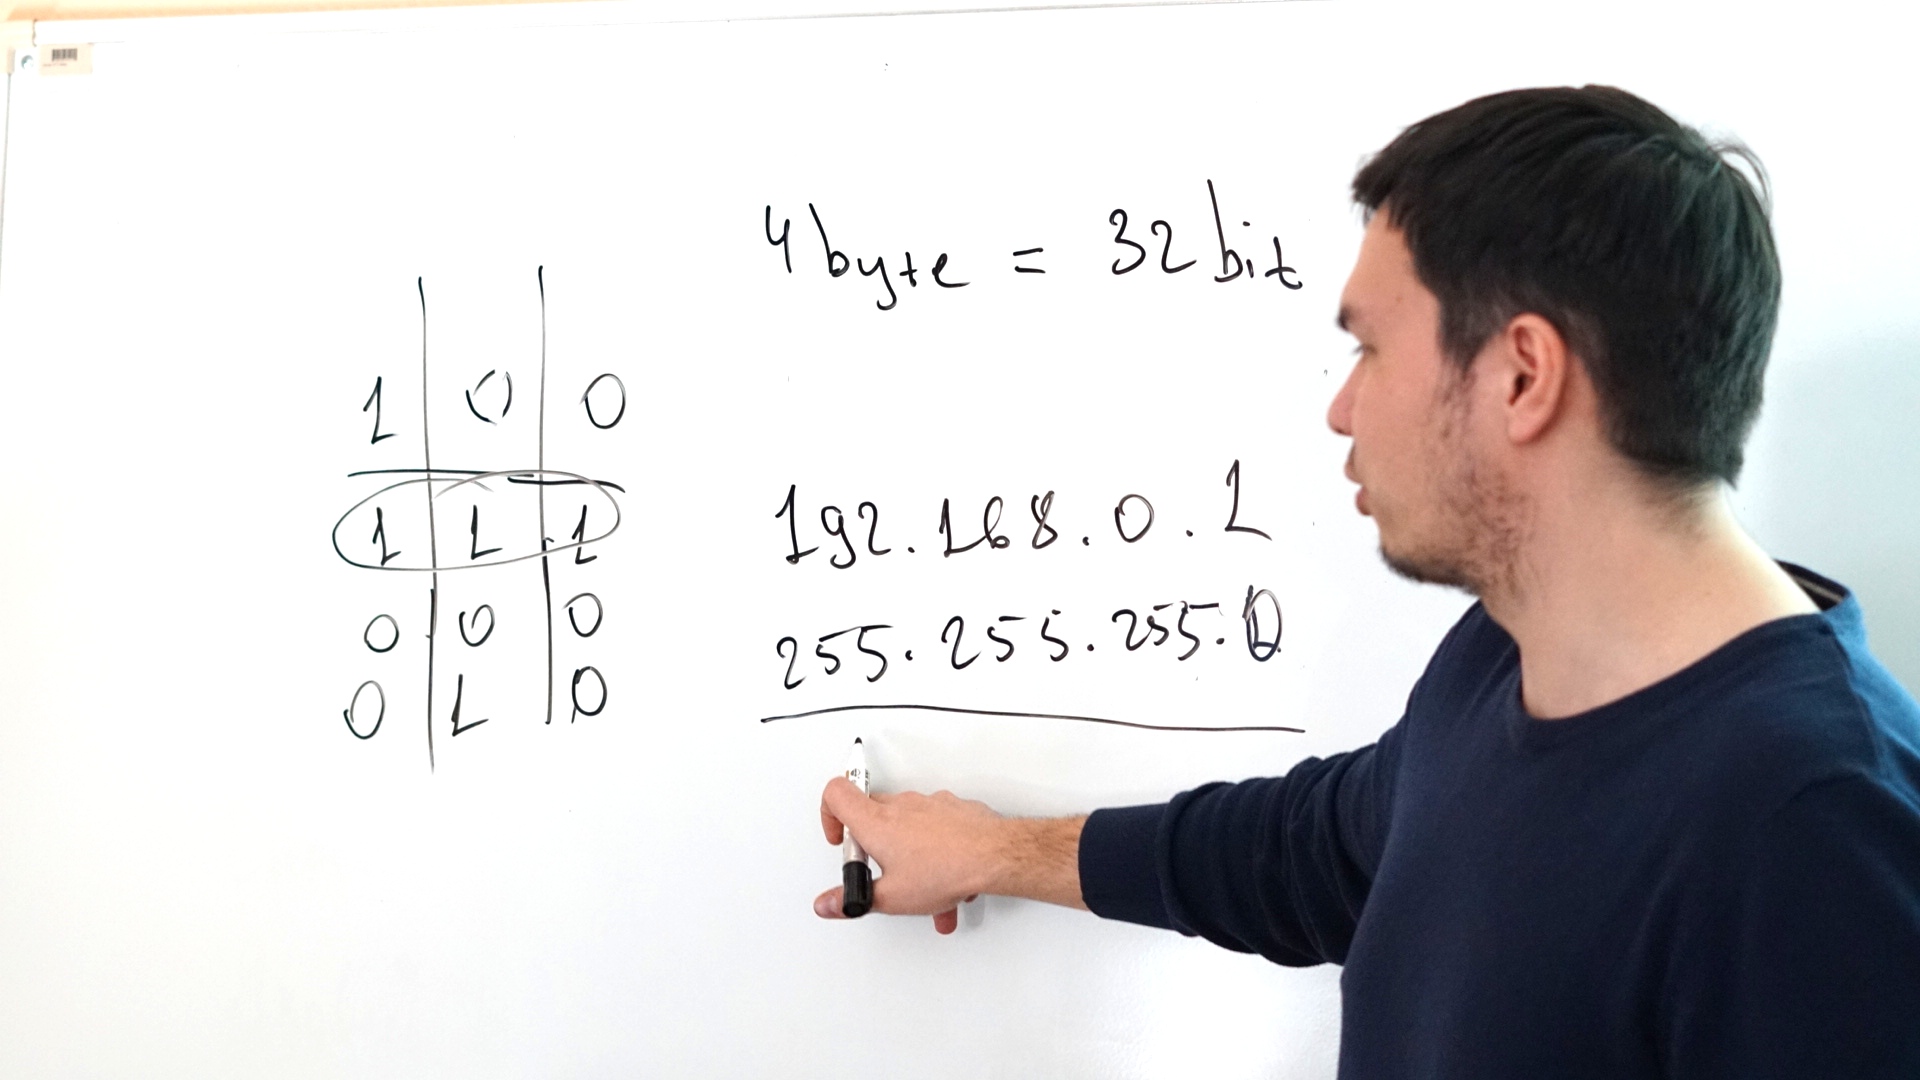 4 byte = 32 bit
1 0 0
1 1 1
0 0 0
0 1 0
192.168.0.1
255.255.255.0